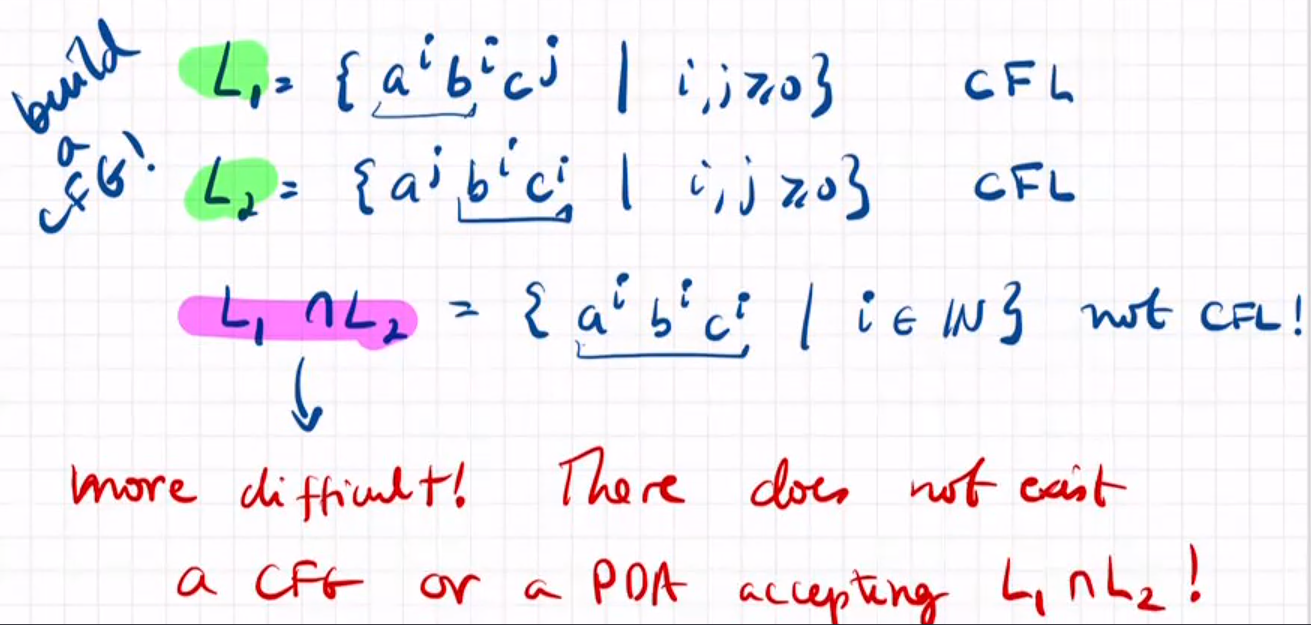 build a CFG!
L₁ = { aⁱ bⁱ cʲ | i,j ⩾ 0 } CFL
L₂ = { aʲ bⁱ cⁱ | i,j ⩾ 0 } CFL
L₁ ∩ L₂ = { aⁱ bⁱ cⁱ | i ∈ ℕ } not CFL!
more difficult! There does not exist
a CFG or a PDA accepting L₁ ∩ L₂ !